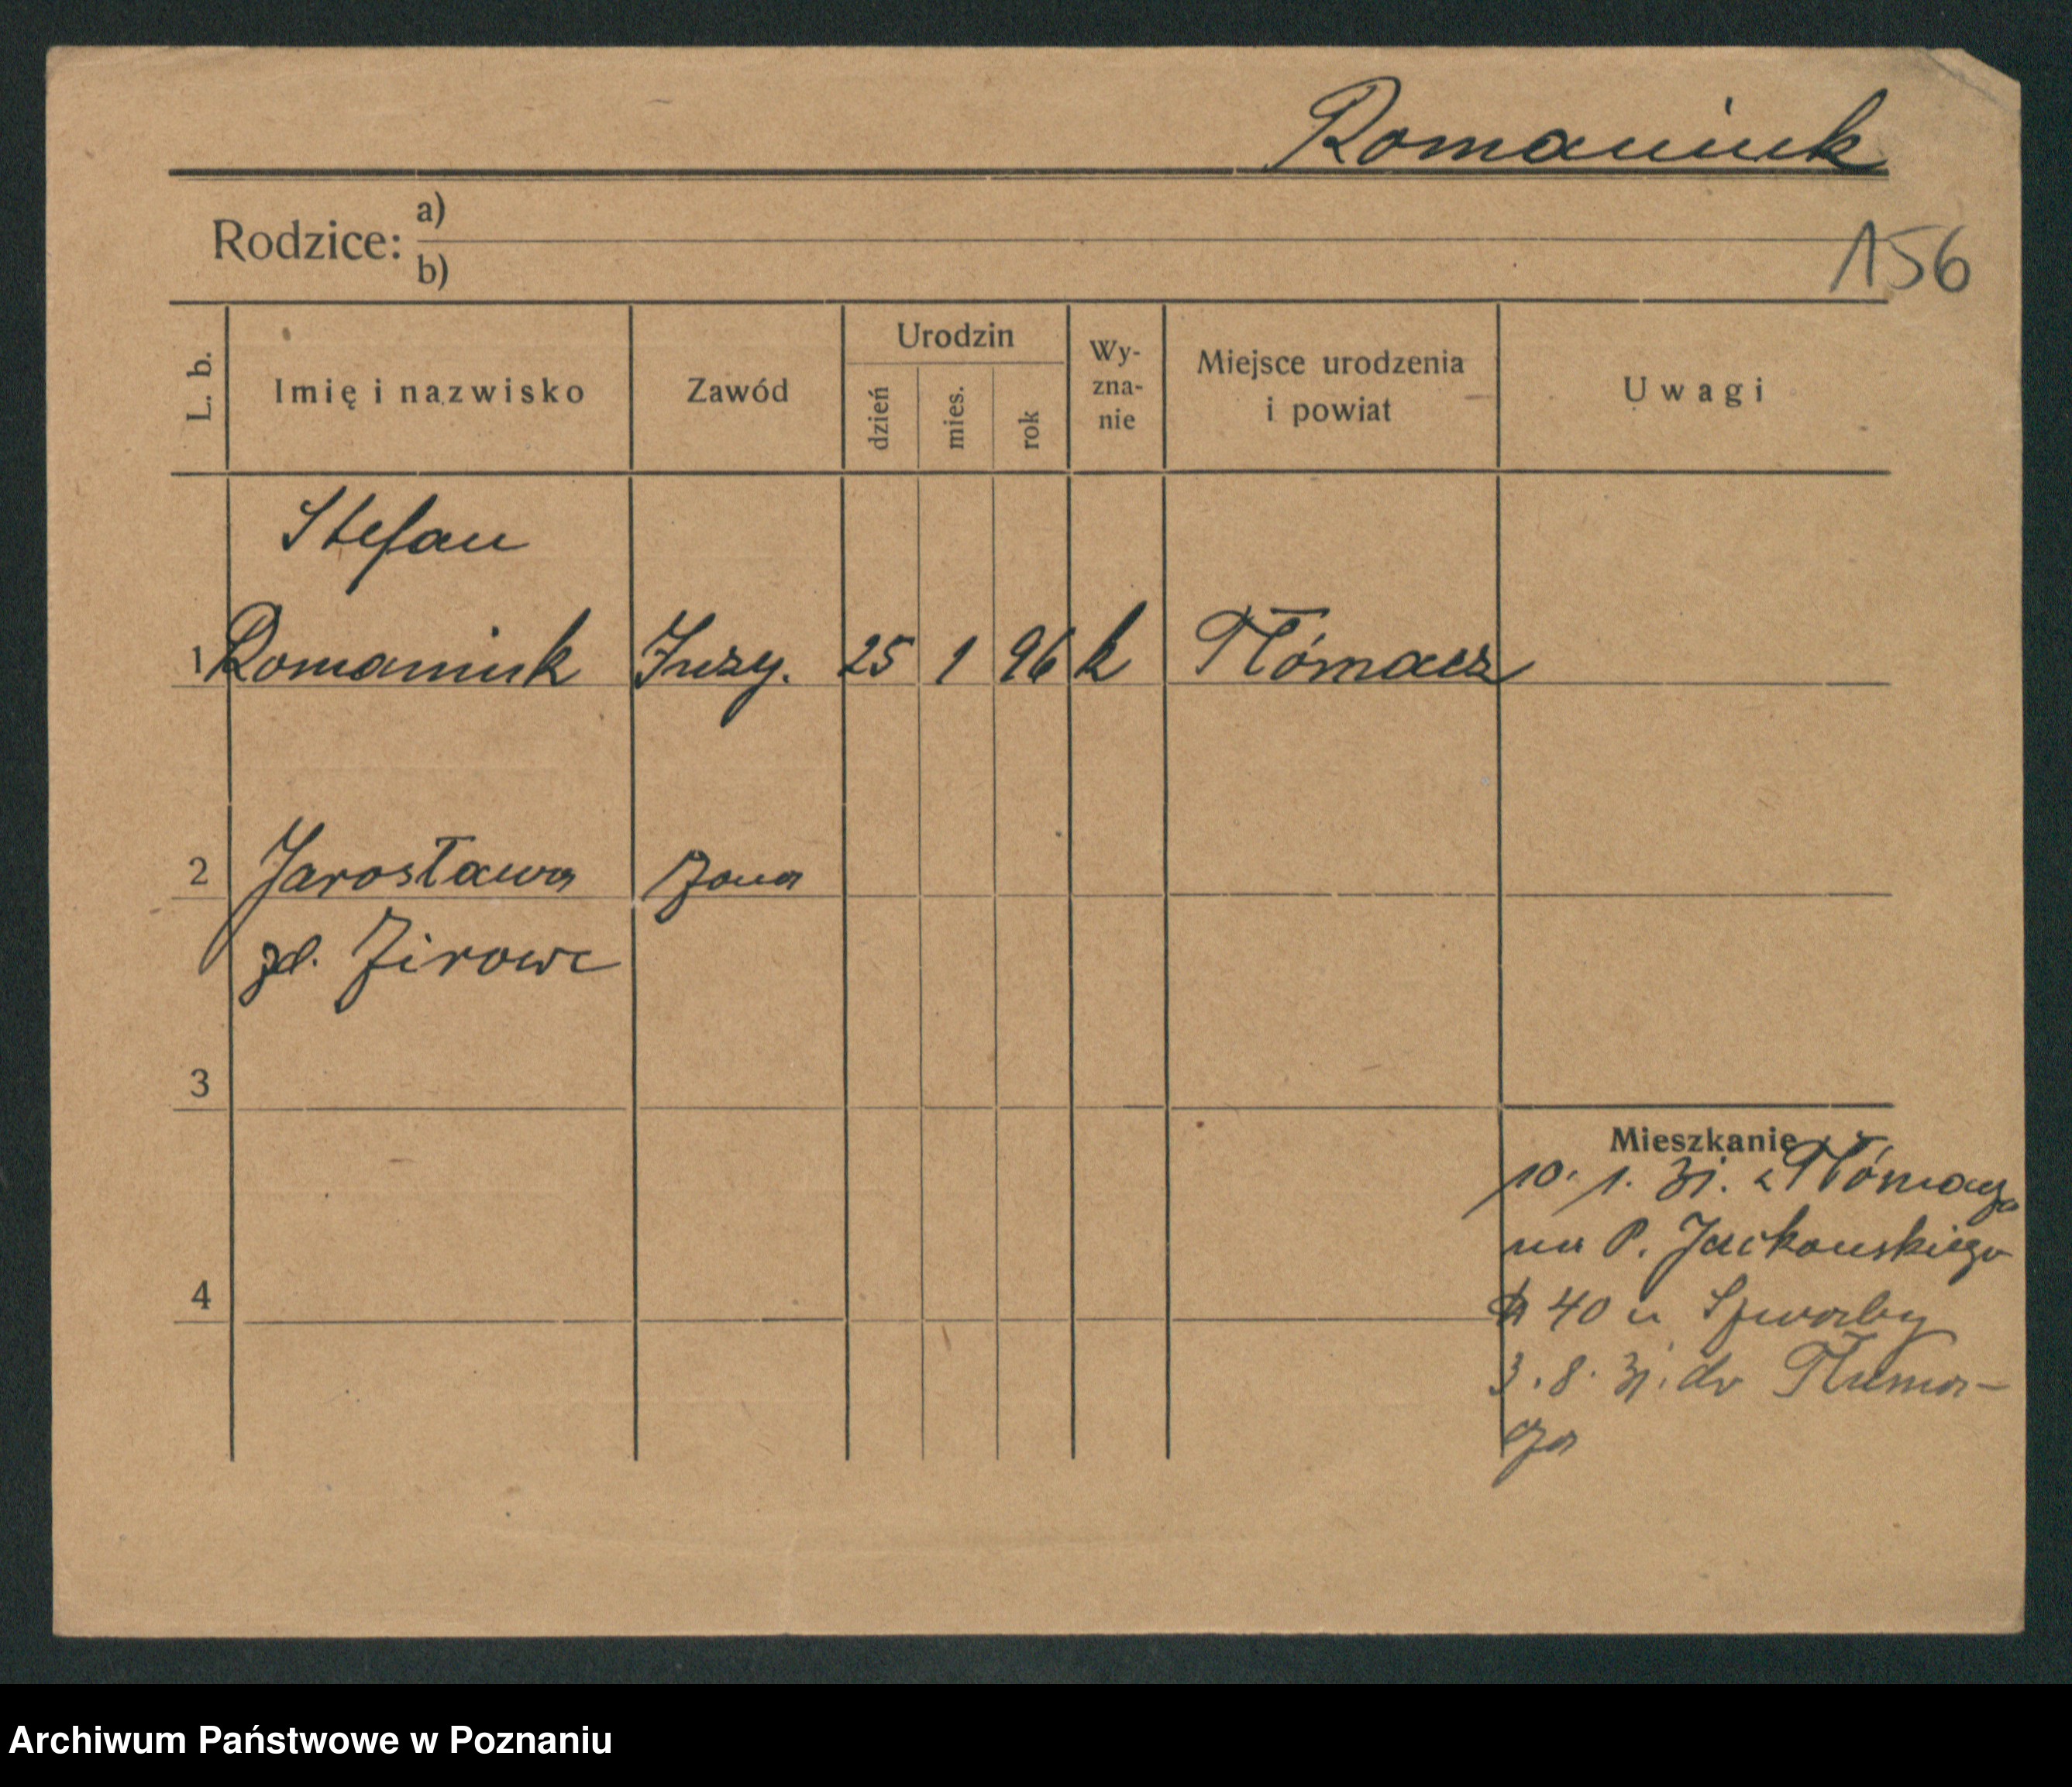 Romaniuk
Rodzice: a)
b)
156
L. b.
Imię i nazwisko
Zawód
Urodzin
dzień
mies.
rok
Wy-
zna-
nie
Miejsce urodzenia
i powiat
Uwagi
Stefan
1 Romaniuk Inży. 25 1 96 k Tłómacz
2 Jarosława żona
zd. Żirowc
3
4
Mieszkanie
10. 1. 31. z Tłómacza
na P. Jackowskiego
40 u
3. 8. 31. do Tłuma-
cza
Archiwum Państwowe w Poznaniu